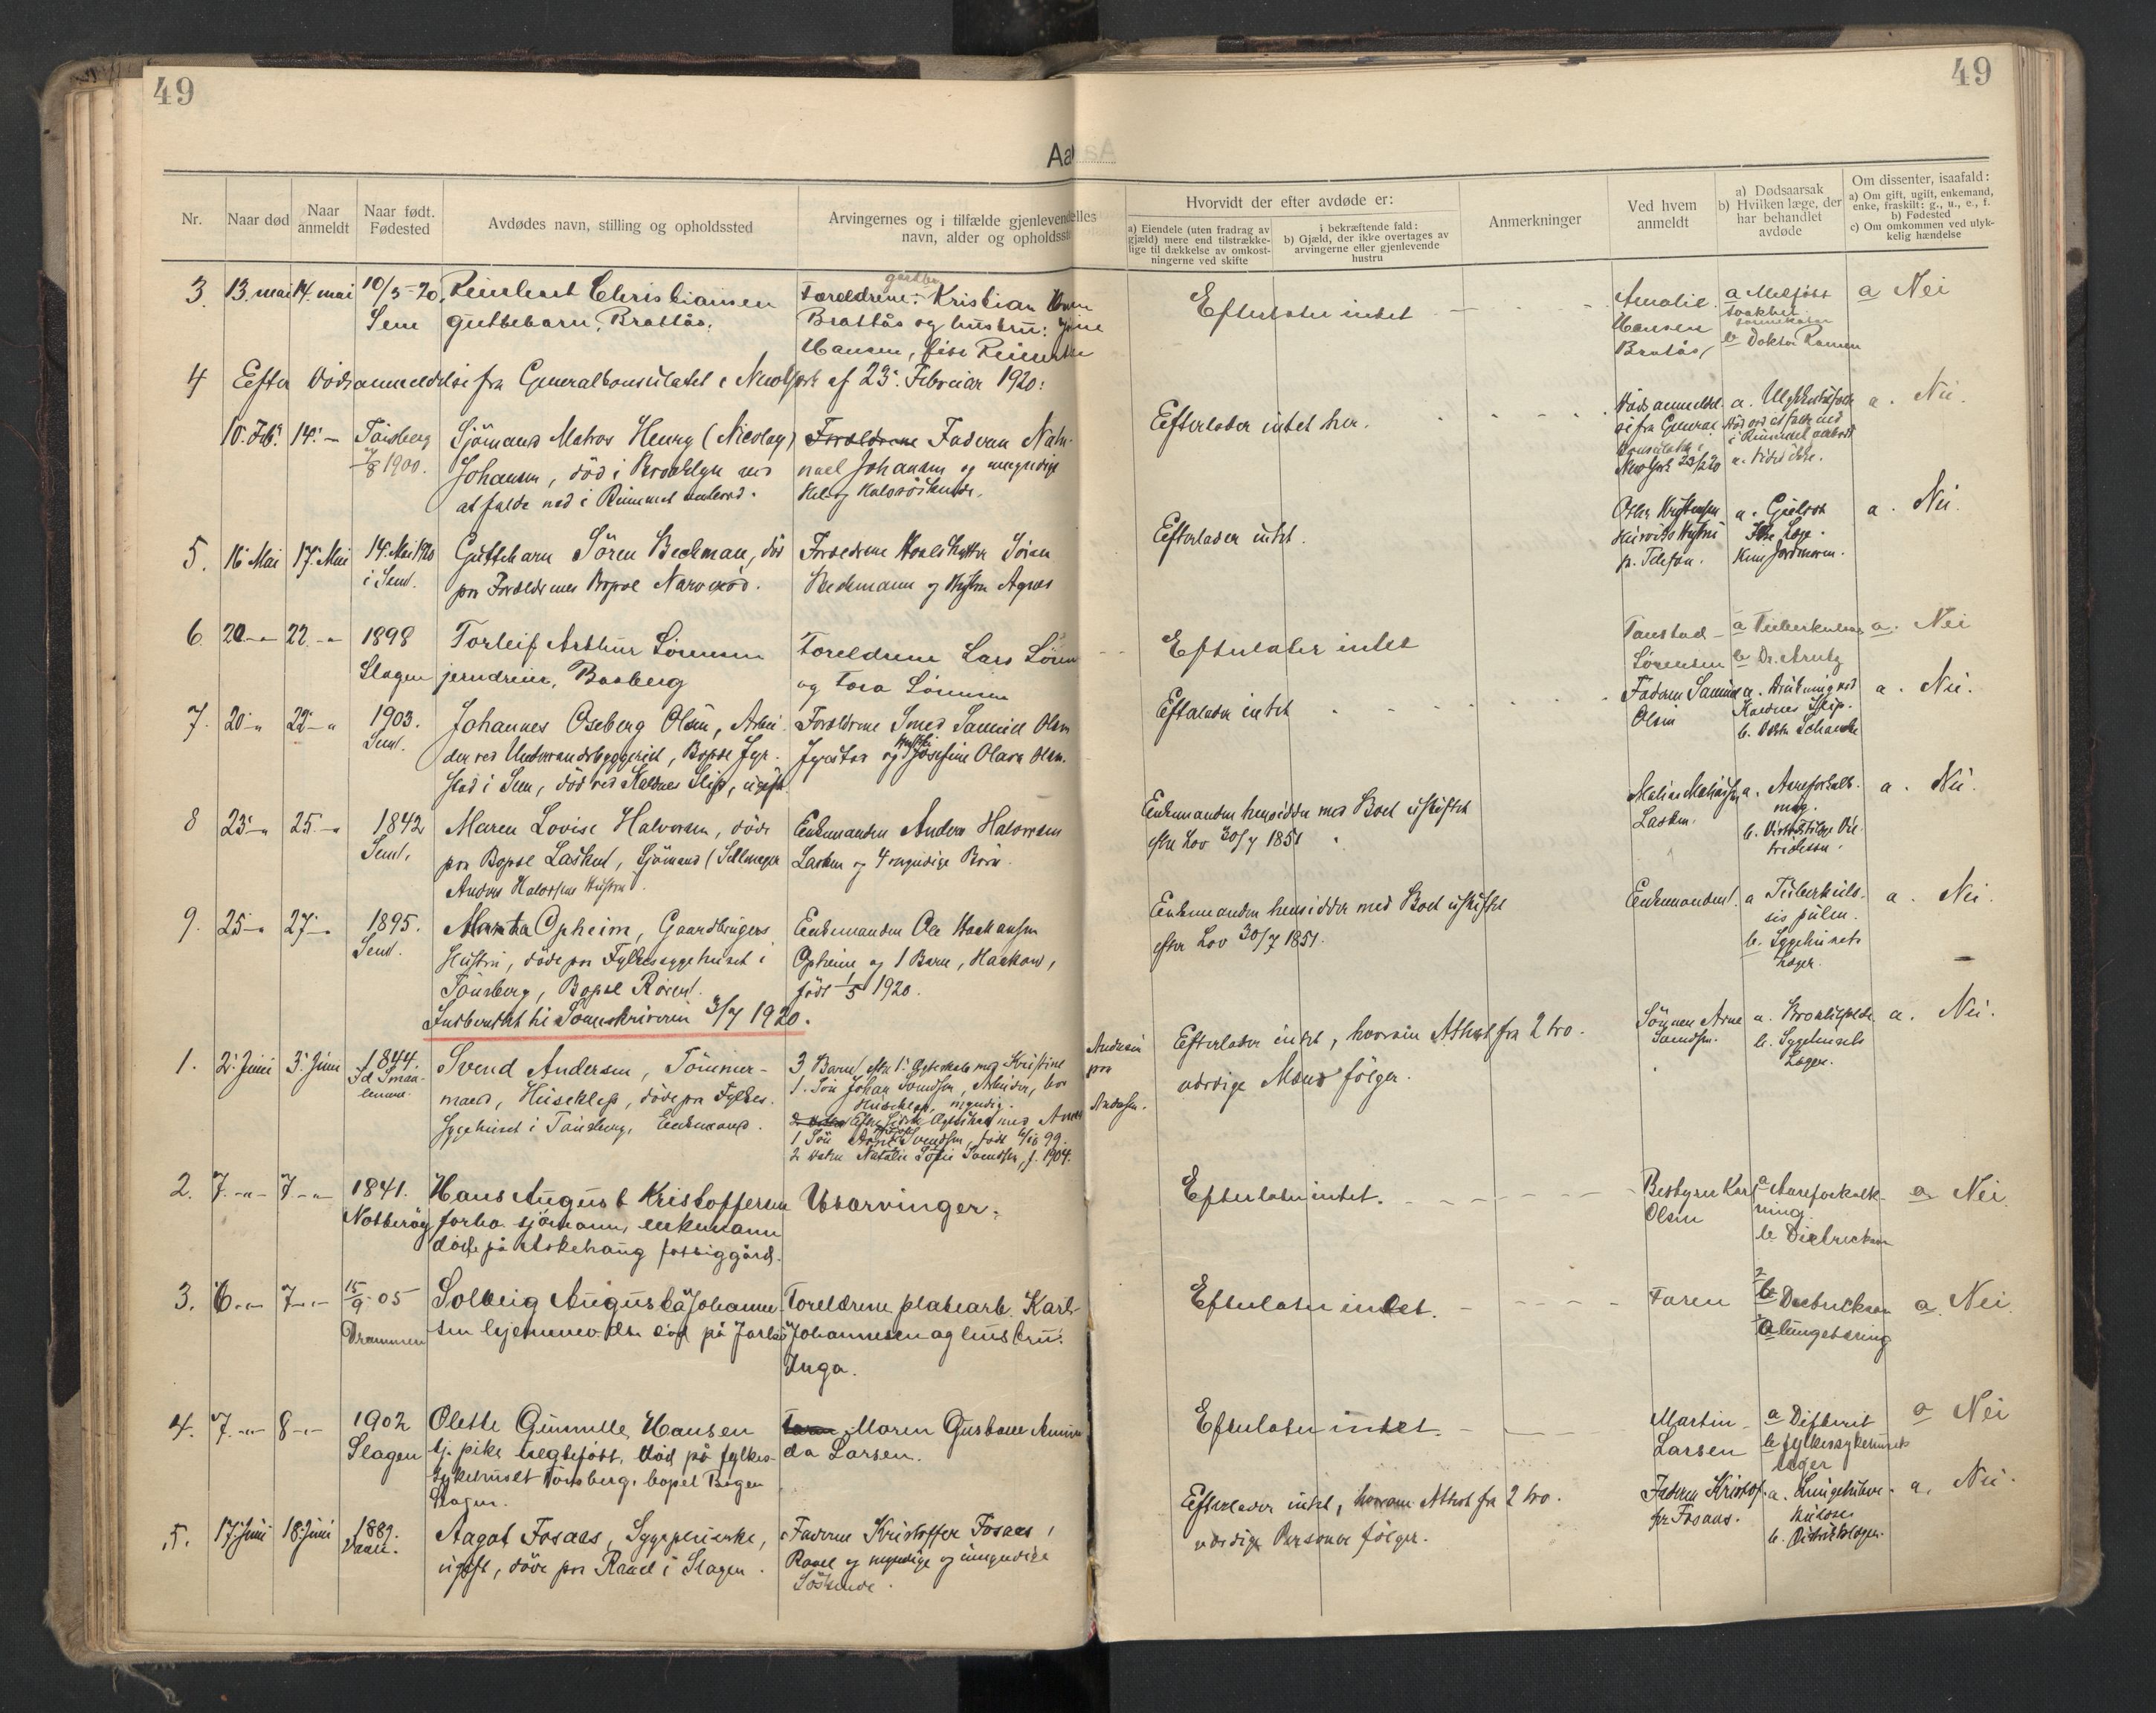 49
49
Aa
Nr.
Naar død
Naar anmeldt
Naar født. Fødested
Avdødes navn, stilling og opholdssted
Arvingernes og i tilfælde gjenlevendes
navn, alder og opholdsst
Hvorvidt der efter avdøde er:
a) Eiendele (uten fradrag av gjæld) mere end tilstrækkelige til dækkelse av omkostningerne ved skifte
i bekræftende fald:
b) Gjæld, der ikke overtages av arvingerne eller gjenlevende hustru
Anmerkninger
Ved hvem anmeldt
a) Dødsaarsak
b) Hvilken læge, der har behandlet avdøde
Om dissenter, isaafald:
a) Om gift, ugift, enkemand, enke, fraskilt: g., u., e., f.
b) Fødested
c) Om omkommen ved ulykkelig hændelse
3. 13. mai 14. mai 10/5-20. Sem
Christiansen
guttebarn, Brattås.
Foreldrene: Kristian
Brattås og hustru:
Hansen, født
Efterlater intet
Amalie
Hansen
Bratås
b Doktor
a Nei
4 Efter Dødsanmeldelse fra Generalkonsulatet i New York af 23. Februar 1920:
10. Feb. 14. — Tønsberg 1900.
Sjömand Matros Henry (Nicolay)
Johansen, död i Brooklyn ved
at falde ned i Rummet ombord.
Forældrene Faderen
Johansen og umyndige
Hel og Halvsöskende.
Efterlader intet her.
Dødsanmeldel
se fra General
konsulatet i
New York 23/2 20
a. Nei.
5. 16 Mai 17. Mai 14. Mai 1920 i Sem.
Guttebarn Sören Beckman, död
paa Forældrenes Bopæl
Forældrene Sören
Beckmann og Hustru Agnes
Efterlader intet.
pr. Telefon.
Kun Jordmoren.
a. Nei.
6. 20 — 22 — 1898 Slagen
Torleif Arthur Sörensen
jerndreier, Basberg
Foreldrene Lars Sören
og Tora Sörensen
Efterlater intet
Sörensen
a Tuberkulose
b Dr. Arntz
a. Nei
7. 20 — 22 — 1903. Sem.
Johannes Oseberg Olsen, Arbei
der ved Undervandsbyggeriet, Bopæl Jar
stad i Sem, död ved Kaldnes Slip, ugift.
Forældrene Smed Samuel Olsen
og Hustru Josefine Olava Olsen.
Efterlader intet
Faderen Samuel
Olsen
a. Drukning ved
Kaldnes Slip.
a. Nei.
8 23 — 25 — 1842 Sem.
Maren Lovise Halvorsen, döde
paa Bopæl Lasken, Sjömand (Seilmager
Anders Halvorsens Hustru.
Enkemanden Anders Halvorsen
Lasken og 4 myndige Börn.
Enkemanden hensidder med Boet uskiftet
efter Lov 30/7 1851
Lasken.
a. Aareforkalk-
ning.
a. Nei.
9. 25 — 27 — 1895. Sem.
Marta Opheim, Gaardbrugers
Hustru, döde paa Fylkessygehuset i
Tönsberg, Bopæl Råen.
Enkemanden Ole Haakansen
Opheim og 1 Barn, Haakon,
född 1/5 1920.
Enkemanden hensidder med Boet uskiftet
efter Lov 30/7 1851.
Enkemanden.
a Tuberkulo-
sis pulm.
b. Sygehusets
Læger.
a. Nei.
Indberettet til Sorenskriveren 3/7 1920.
1. 2. Juni 3. Juni 1844.
Svend Andersen, Tömmer-
mand, Huseklep, döde paa Fylkes-
sygehuset i Tönsberg, Enkemand.
3 Barn efter 1. Ægteskab med Kristine
1. Sön Johan Svendsen, Arbeider, bor
Huseklep, myndig.
Efter sidste Ægteskab med Anne
1 Sön Arne Svendsen, född 6/10 99.
2 Datter Natalie Sofie Svendsen, f. 1904.
Andersen
paa
Andersen.
Efterlader intet, hvorom Attest fra 2 tro-
værdige Mænd fölger.
Sönnen Arne
Svendsen.
b. Sygehusets
Læger.
a. Nei.
2. 7. — 7 — 1841. Nötteröy
Hans August Kristoffersen
forhv. sjömann, enkemann
döde på Askehaug fattiggård.
Utsarvinger.
Efterlater intet.
Bestyrer Karl
Olsen
a Aareforkalk-
ning.
b Diedrickson
a Nei.
3. 6. — 7 — 15/9-05 Drammen
Solveig Augusta Johannes-
sen hjemmev. dtr. död på Jarlsö
Foreldrene platearb. Karl
Johannesen og hustru:
Inga.
Efterlater intet.
Faren
b Diedrickson
a lungetæring
a. Nei.
4. 7. — 8 — 1902 Slagen
Olette Gunnille Hansen
tj. pike uegtefött, död på fylkes-
sykehuset Tönsberg, bopel Bogen
Slagen.
Maren Gustave Amin
da Larsen.
Efterlater intet.
Martin
Larsen
a Difterit
b fylkessykehusets
læger
a Nei
5. 17. Juni 18. Juni 1889.
Aagot Fosaas, Sygepleierske,
ugift, döde paa Råel i Slagen.
Faderen Kristoffer Fosaas,
Raael og myndige og umyndige
Söskende.
Efterlader intet, hvorom Attest fra 2 tro-
værdige Personer fölger.
Faderen Kristof-
fer Fosaas.
a. Lungetuber-
kulose
b. Distriktslægen.
a. Nei.